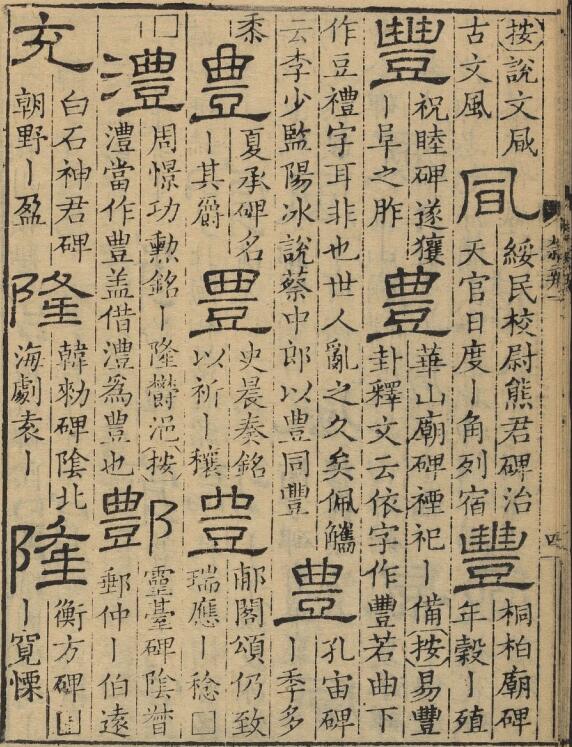 按說文凬
古文風
同
綏民校尉熊君碑治
天官日度丨角列宿
豐
桐柏廟碑
年穀丨殖
豐
祝睦碑遂獲
丨阜之胙
豊
華山廟碑禋祀丨備按易豐
卦釋文云依字作豐若曲下
作豆禮字耳非也世人亂之久矣佩觿
云李少監陽冰說蔡中郎以豊同豐
豊
孔宙碑
丨季多
黍
豊
夏承碑名
丨其爵
豊
史晨奏銘
以祈丨穰
豊
郙閣頌仍致
瑞應丨稔□
□
澧
周憬功勳銘丨隆鬱浥按
澧當作豊盖借澧為豊也
酆
靈臺碑陰督
郵仲丨伯遠
充
白石神君碑
朝野丨盈
隆
韓勑碑陰北
海劇袁丨
隆
衡方碑
丨寬慄
四